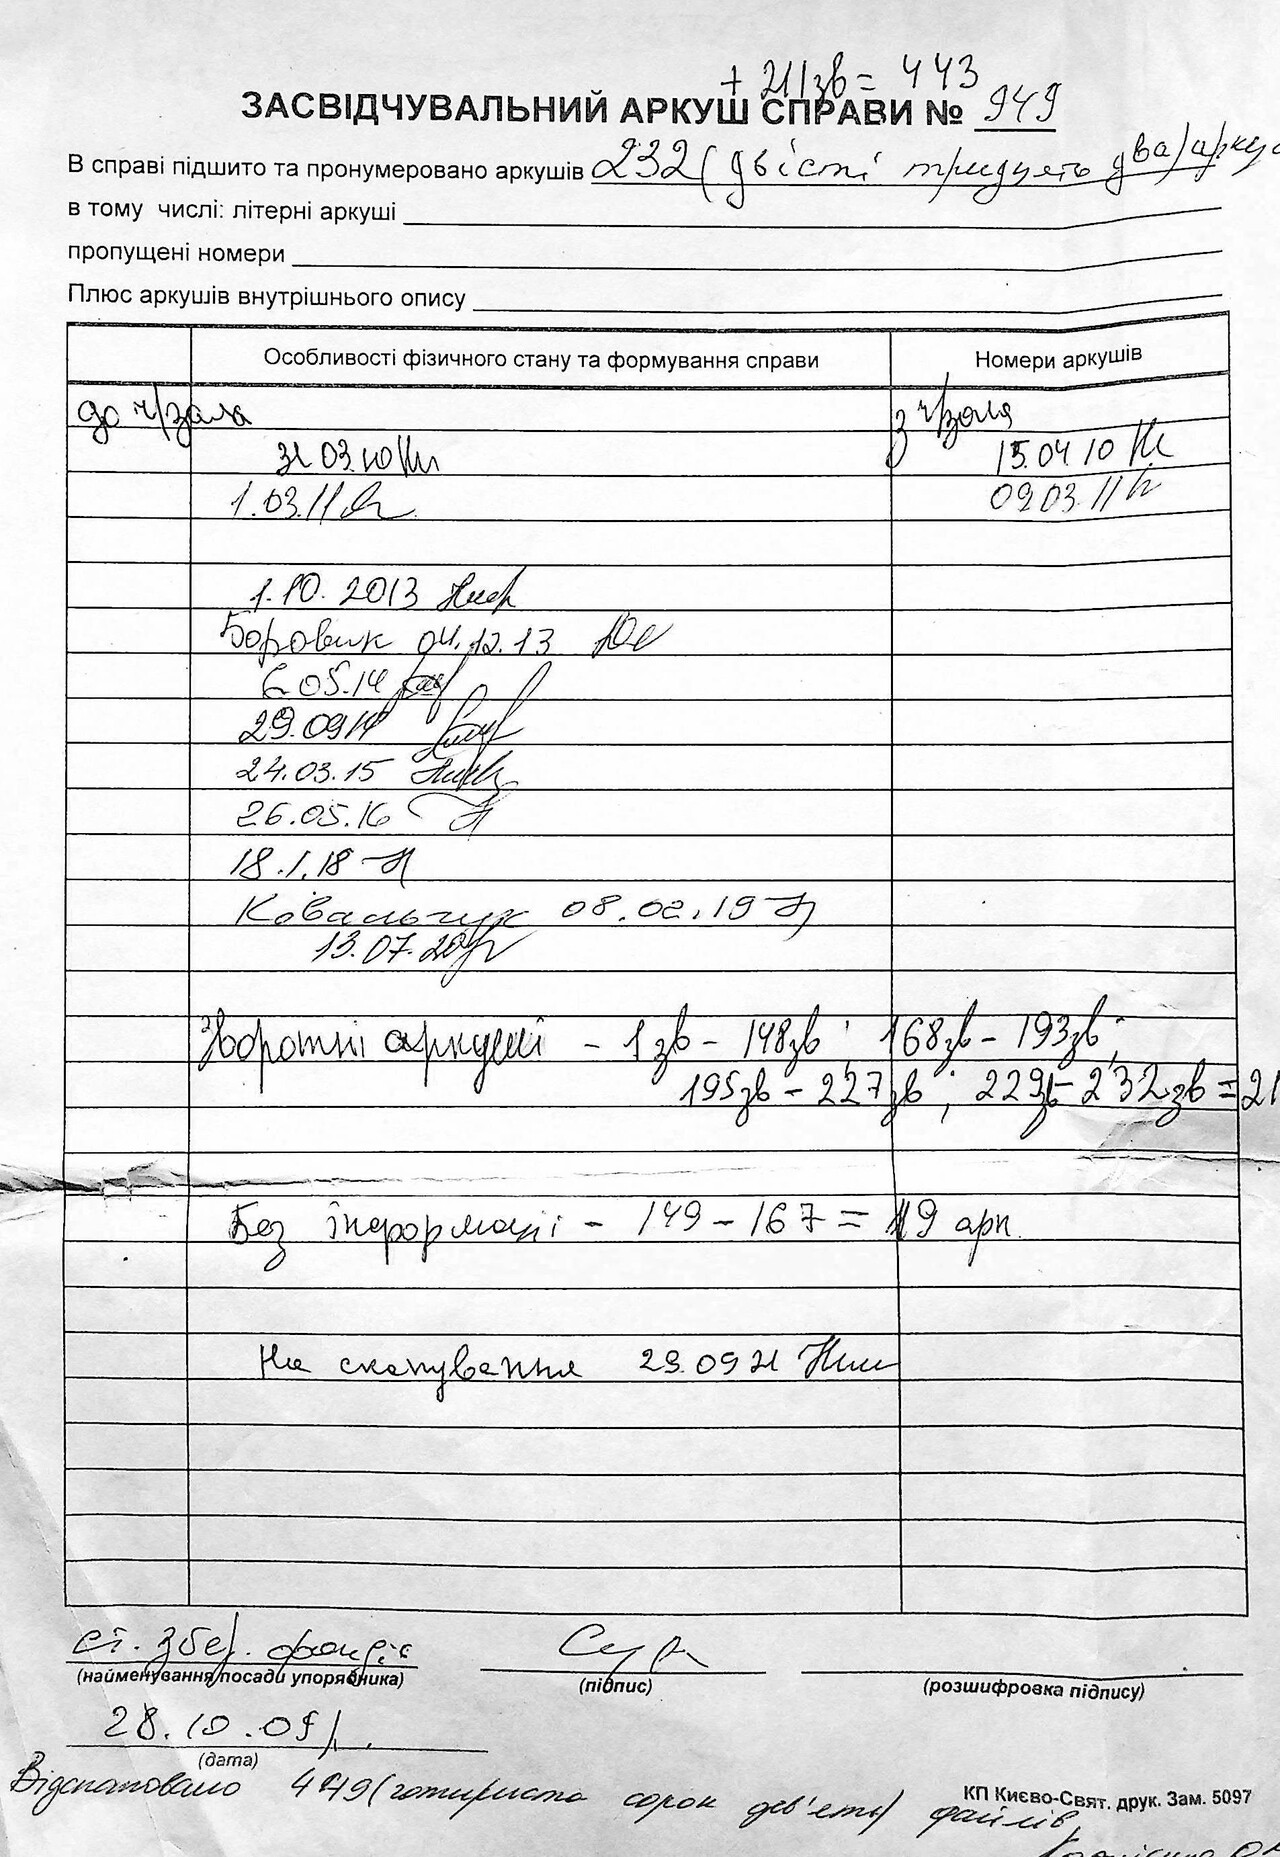 + 211зв = 443
ЗАСВІДЧУВАЛЬНИЙ АРКУШ СПРАВИ № 949
В справі підшито та пронумеровано аркушів 232 (двісті тридцять два) арку
в тому числі: літерні аркуші
пропущені номери
Плюс аркушів внутрішнього опису
Особливості фізичного стану та формування справи Номери аркушів
до ч/зала з ч/зала
31.03.10 15.04.10
1.03.11 09.03.11
1.10.2013
Боровик 04.12.13
6.05.14
29.09.14
24.03.15
26.05.16
18.1.18
Ковальчук 08.02.19
13.07.20
Зворотні аркуші - 1зв - 148зв; 168зв - 193зв;
195зв - 227зв; 229зв - 232зв = 21
Без інформації - 149 - 167 = 19 арк.
На сканування 29.09.21
ст. збер. фондів
(найменування посади упорядника) (підпис) (розшифровка підпису)
28.10.09
(дата)
Відскановано 449 (чотириста сорок дев'ять) файлів
КП Києво-Свят. друк. Зам. 5097